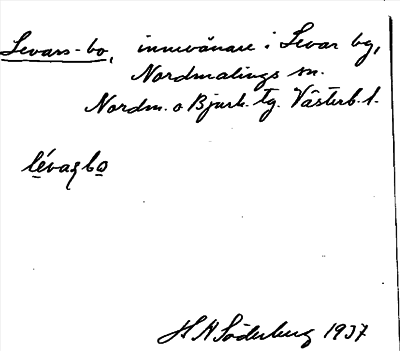 Levars-bo, innevånare i Levar by,
Nordmalings sn.
Nordm. o Bjurh. tg. Västerb. l.
lévaʂbo
H A Söderberg 1937